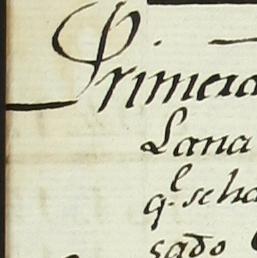 Primera
Lana
q.e se ha
sado